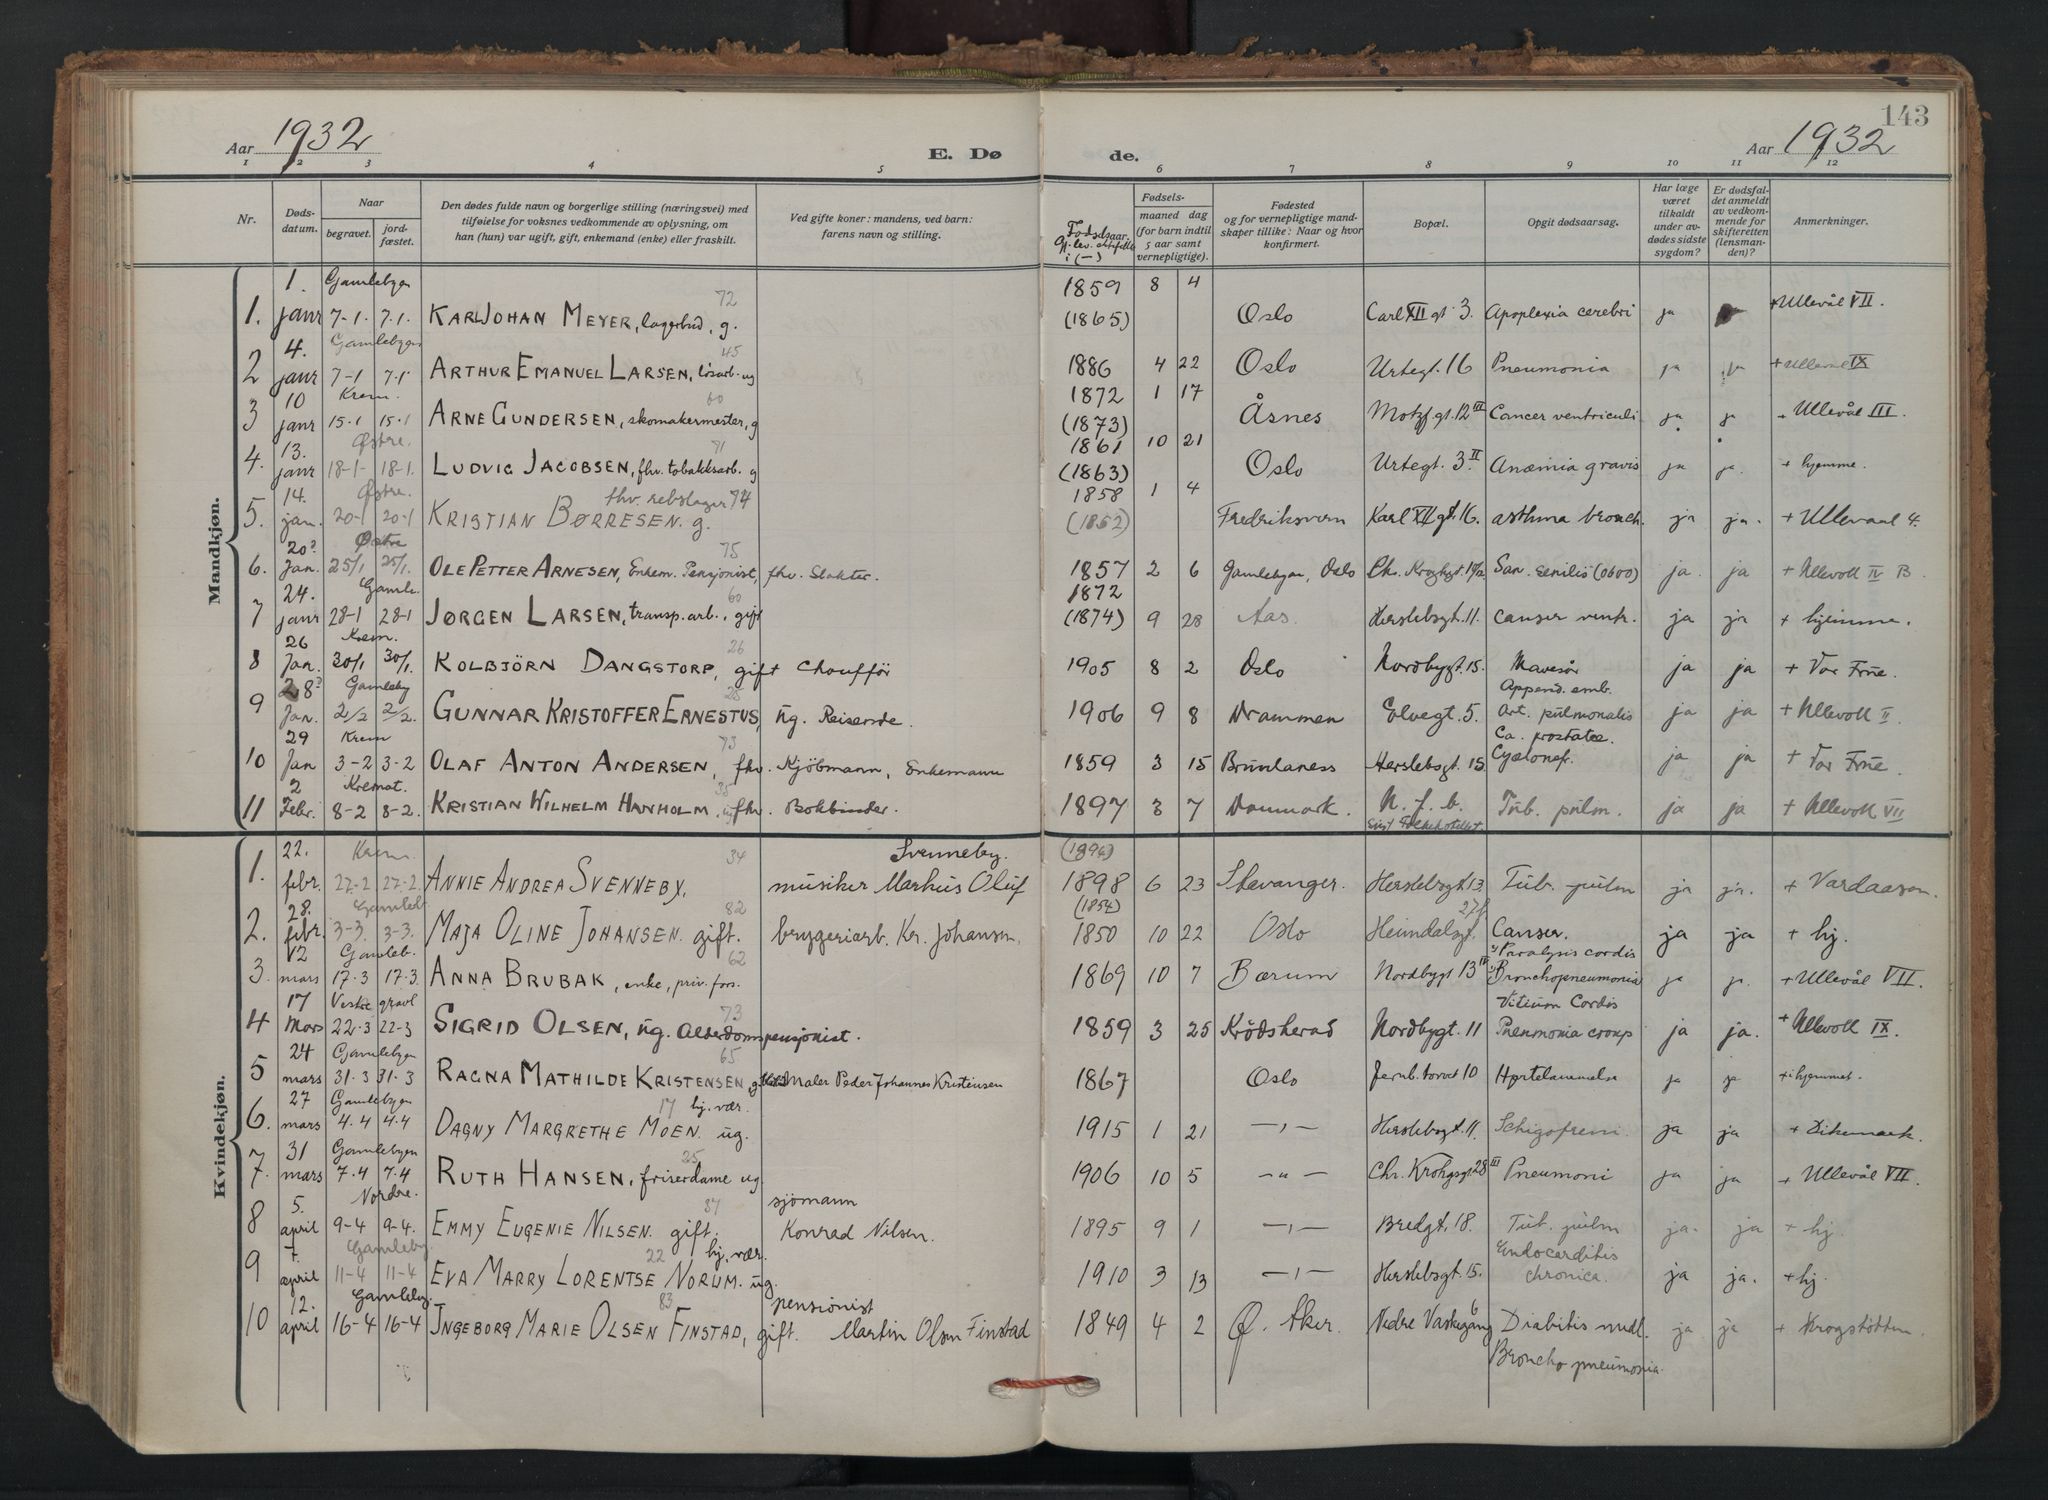 143
Aar 1932
E. Døde.
Aar 1932
1 2 3 4 5 6 7 8 9 10 11 12
Nr.
Døds-
datum.
Naar
begravet.
jord-
fæstet.
Den dødes fulde navn og borgerlige stilling (næringsvei) med
tilføielse for voksnes vedkommende av oplysning, om
han (hun) var ugift, gift, enkemand (enke) eller fraskilt.
Ved gifte koner: mandens, ved barn:
farens navn og stilling.
Fødselsaar.
Gj.lev. ektefelle
i (—)
Fødsels-
maaned dag
(for barn indtil
5 aar samt
vernepligtige).
Fødested
og for vernepligtige mand-
skaper tillike: Naar og hvor
konfirmert.
Bopæl.
Opgit dødsaarsag.
Har læge
været
tilkaldt
under av-
dødes sidste
sygdom?
Er dødsfal-
det anmeldt
av vedkom-
mende for
skifteretten
(lensman-
den)?
Anmerkninger.
Mandkjøn.
1. Gamlebyen 72 1859 8 4
1. janr 7-1. 7.1. KARL JOHAN MEYER, lagerbud, g. (1865) Oslo Carl XII gt 3. Apoplexia cerebri ja + Ullevål VII.
4. Gamlebyen 45
2 janr 7-1 7.1 ARTHUR EMANUEL LARSEN, løsarb. ug 1886 4 22 Oslo Urtegt. 16 Pneumonia ja ja + Ullevål IX
10 Krem. 60 1872 1 17
3 janr 15.1 15.1 ARNE GUNDERSEN, skomakermester, g (1873) Åsnes Motzf.gt. 12 III Cancer ventriculi ja ja + Ullevål III.
13. Østre. 71 1861 10 21
4. janr 18-1- 18-1. LUDVIG JACOBSEN, fhv. tobakksarb. g (1863) Oslo Urtegt. 3. II Anæmia gravis ja ja. + hjemme.
14. Østre. fhv. rebslager 74 1858 1 4
5. jan. 20-1 20-1 KRISTIAN BØRRESEN. g. (1852) Fredriksvern Karl XII gt. 16. asthma bronch. ja ja. + Ullevaal 4.
20? Østre 75
6. Jan. 25/1 25/1. OLE PETTER ARNESEN, Enkem. Pensjonist, fhv. Slakter. 1857 2 6 Gamlebyen, Oslo Chr. Kroghgt. senilis (0600) ja. ja + Ullevoll IV B.
24. Gamle. 60 1872
7 janr 28-1 28-1 JØRGEN LARSEN, transp. arb., gift (1874) 9 28 Aas. Herslebsgt. 11. canser ventr. ja ja + hjemme.
26 Krem. 26
8 Jan. 30/1 30/1. KOLBJÖRN DANGSTORP, gift Chouffør 1905 8 2 Oslo Nordbygt. 15. Mavesår ja ja + Vor Frue.
28? Gamleby 25 Append. emb.
9 Jan. 2/2 2/2. GUNNAR KRISTOFFER ERNESTUS, ug. Reisende. 1906 9 8 Drammen Elvegt. 5. Art. pulmonalis ja ja + Ullevoll II.
29 Krem 73 Ca. prostatae.
10 Jan 3-2 3-2 OLAF ANTON ANDERSEN, fhv. Kjöbmann, Enkemann 1859 3 15 Brunlaness Herslebsgt. 15. ja ja + Vor Frue.
2 Kremat. 35
11 Febr. 8-2 8-2. KRISTIAN WILHELM HANHOLM. ug fhv. Bokbinder. 1897 3 7 Danmark. N. f. b. Tub. pulm. ja ja + Ullevoll VII
sist Folkehotellet.
Kvindekjøn.
22. Krem. 34 Svenneby. (1894)
1. febr. 27-2 27-2. ANNIE ANDREA SVENNEBY. musiker Markus Oluf 1898 6 23 Stavanger. Herslebsgt. 13. Tub. pulm ja ja. + Vardaasen.
28. Gamleb. 82 (1854) 27b
2. febr. 3-3. 3-3. MAJA OLINE JOHANSEN. gift. bryggeriarb. Kr. Johansen. 1850 10 22 Oslo Heimdalsgt. Canser. ja ja + hj.
12 Gamleb. 62 Paralysis cordis
3. mars 17.3 17.3. ANNA BRUBAK, enke, priv. fors. 1869 10 7 Bærum Nordbygt 13 IV Bronchopneumonia ja ja. + Ullevål VII.
17 Vestre gravl 73 Vitium Cordis
4 Mars 22.3 22-3 SIGRID OLSEN, ug. Alderdomspensjonist. 1859 3 25 Krödsherad Nordbygt. 11 Pneumonia croup ja ja. + Ullevoll IX.
24 Gamlebyen 65
5 mars 31.3 31.3 RAGNA MATHILDE KRISTENSEN Maler Peder Johannes Kristensen 1867 Oslo Jernb. torvet 10 Hjertelammelse ja ja + i hjemmet.
27 Gamlebyen 17 hj. vær.
6. mars 4.4 4.4 DAGNY MARGRETHE MOEN. ug. 1915 1 21 —,— Herslebsgt. 11. Schizofreni. ja ja + Dikemark.
31 Gamlebyen 25
7. mars 7.4 7.4 RUTH HANSEN, friserdame ug 1906 10 5 —"— Chr. Krohgsgt 28 III Pneumoni ja ja + Ullevål VII.
5. Nordre. 37 sjömann
8 april 9-4 9-4. EMMY EUGENIE NILSEN. gift. Konrad Nilsen. 1895 9 1 —,— Bredgt. 18. Tub. pulm ja. ja + hj.
7. Gamleby. 22 hj. vær. Endocarditis
9 april 11-4 11-4 EVA MARRY LORENTSE NORUM. ug. 1910 3 13 —,— Herslebsgt. 15. chronica. ja ja. + hj.
12. Gamleby. 83 pensionist 6
10 april 16-4 16-4 INGEBORG MARIE OLSEN FINSTAD, gift. Martin Olsen Finstad 1849 4 2 Ø. Aker. Nedre Vaskegang Diabitis mell. ja ja + Krogstötten.
Broncho pneumonia.